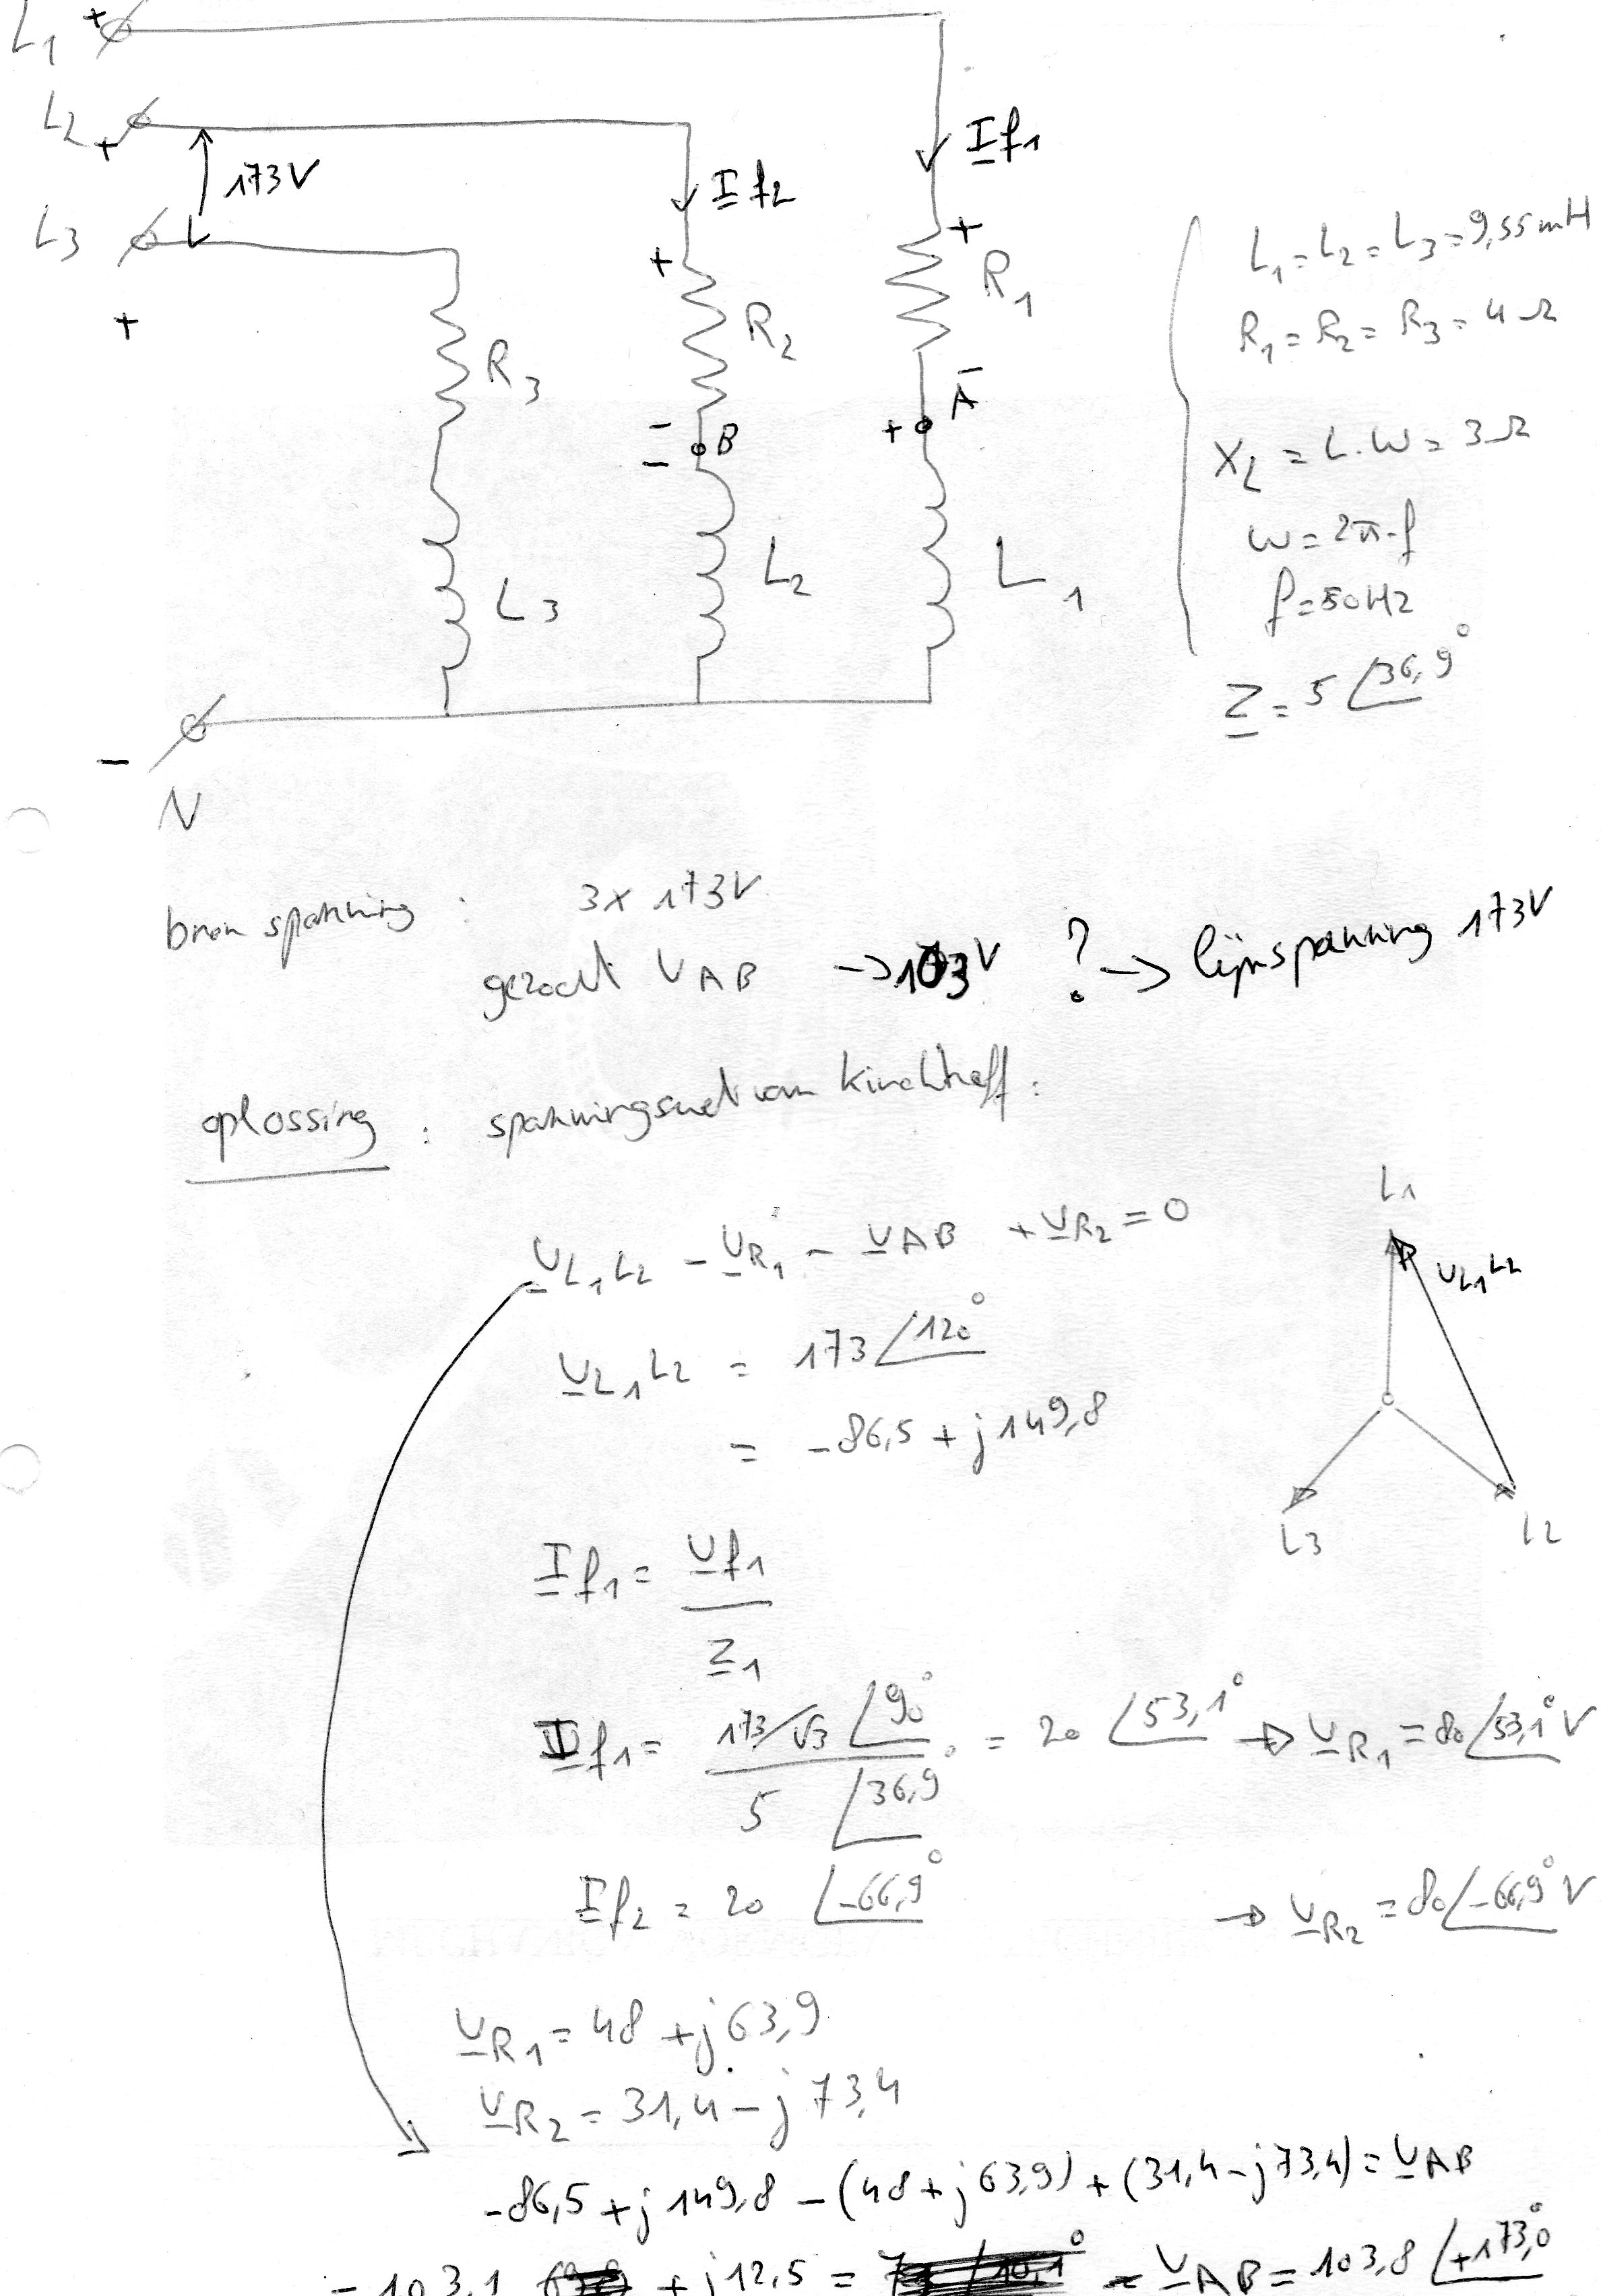 L1 +
L2 +
173V
L3
+
If1
If2
+
+
R1
R2
R3
A -
+
- B
-
L3
L2
L1
-
N
L1 = L2 = L3 = 9,55mH
R1 = R2 = R3 = 4Ω
XL = L.ω = 3Ω
ω = 2π.f
f = 50Hz
Z = 5 ∠36,9°
bronspanning : 3x 173V
gezocht UAB → 103V ? → lijnspanning 173V
oplossing : spanningswet van Kirchhoff :
UL1L2 - UR1 - UAB + UR2 = 0
UL1L2 = 173 ∠120°
= -86,5 + j149,8
L1
UL1L2
L3
L2
If1 = Uf1
Z1
If1 = 173/√3 ∠90° = 20 ∠53,1° → UR1 = 80 ∠53,1° V
5 ∠36,9°
If2 = 20 ∠-66,9° → UR2 = 80 ∠-66,9° V
UR1 = 48 + j63,9
UR2 = 31,4 - j73,4
-86,5 + j149,8 - (48 + j63,9) + (31,4 - j73,4) = UAB
-103,1 + j12,5 = UAB = 103,8 ∠+173,0°